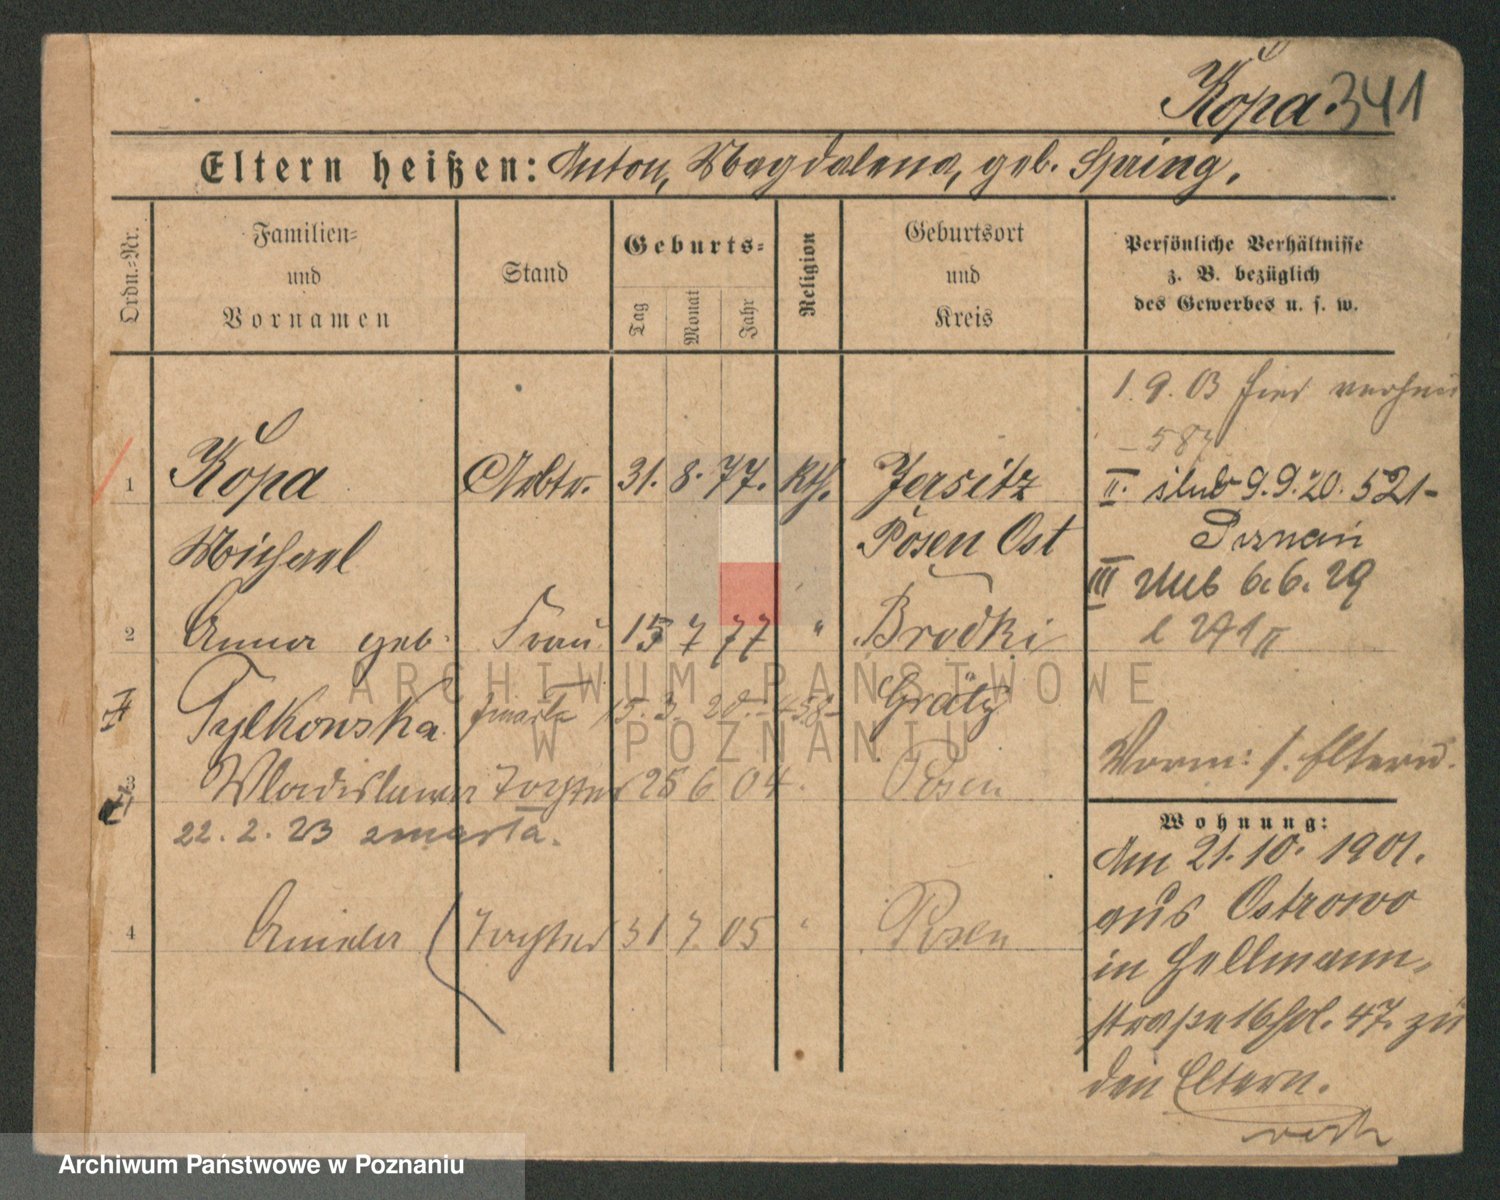 Kopa. 341
Eltern heißen: Anton, Magdalena, geb. Spring.
Ordn.-Nr.
Familien-
und
Vornamen
Stand
Geburts-
Tag
Monat
Jahr
Religion
Geburtsort
und
Kreis
Persönliche Verhältnisse
z. B. bezüglich
des Gewerbes u. s. w.
1. 9. 03 hier verheir
1 Kopa Arbtr. 31. 8. 77. kth. Jersitz
II. ślub 9. 9. 20. 521-
Michael Posen Ost
Poznań
III ślub 6. 6. 29
2 Anna geb. Frau 15 7 77 " Brodki
Tylkowska zmarła 15. 3. 20. 458 Grätz
Vorm: s. Eltern.
3 Wladislawa Tochter 28 6 04. Posen
22. 2. 23 zmarła.
4 Aniela Tochter 31 7. 05 " Posen
Wohnung:
Am 21. 10. 1901.
aus Ostrowo
in Hellmann-
straße 16 47. zu
den Eltern.
ARCHIWUM PAŃSTWOWE
W POZNANIU
Archiwum Państwowe w Poznaniu